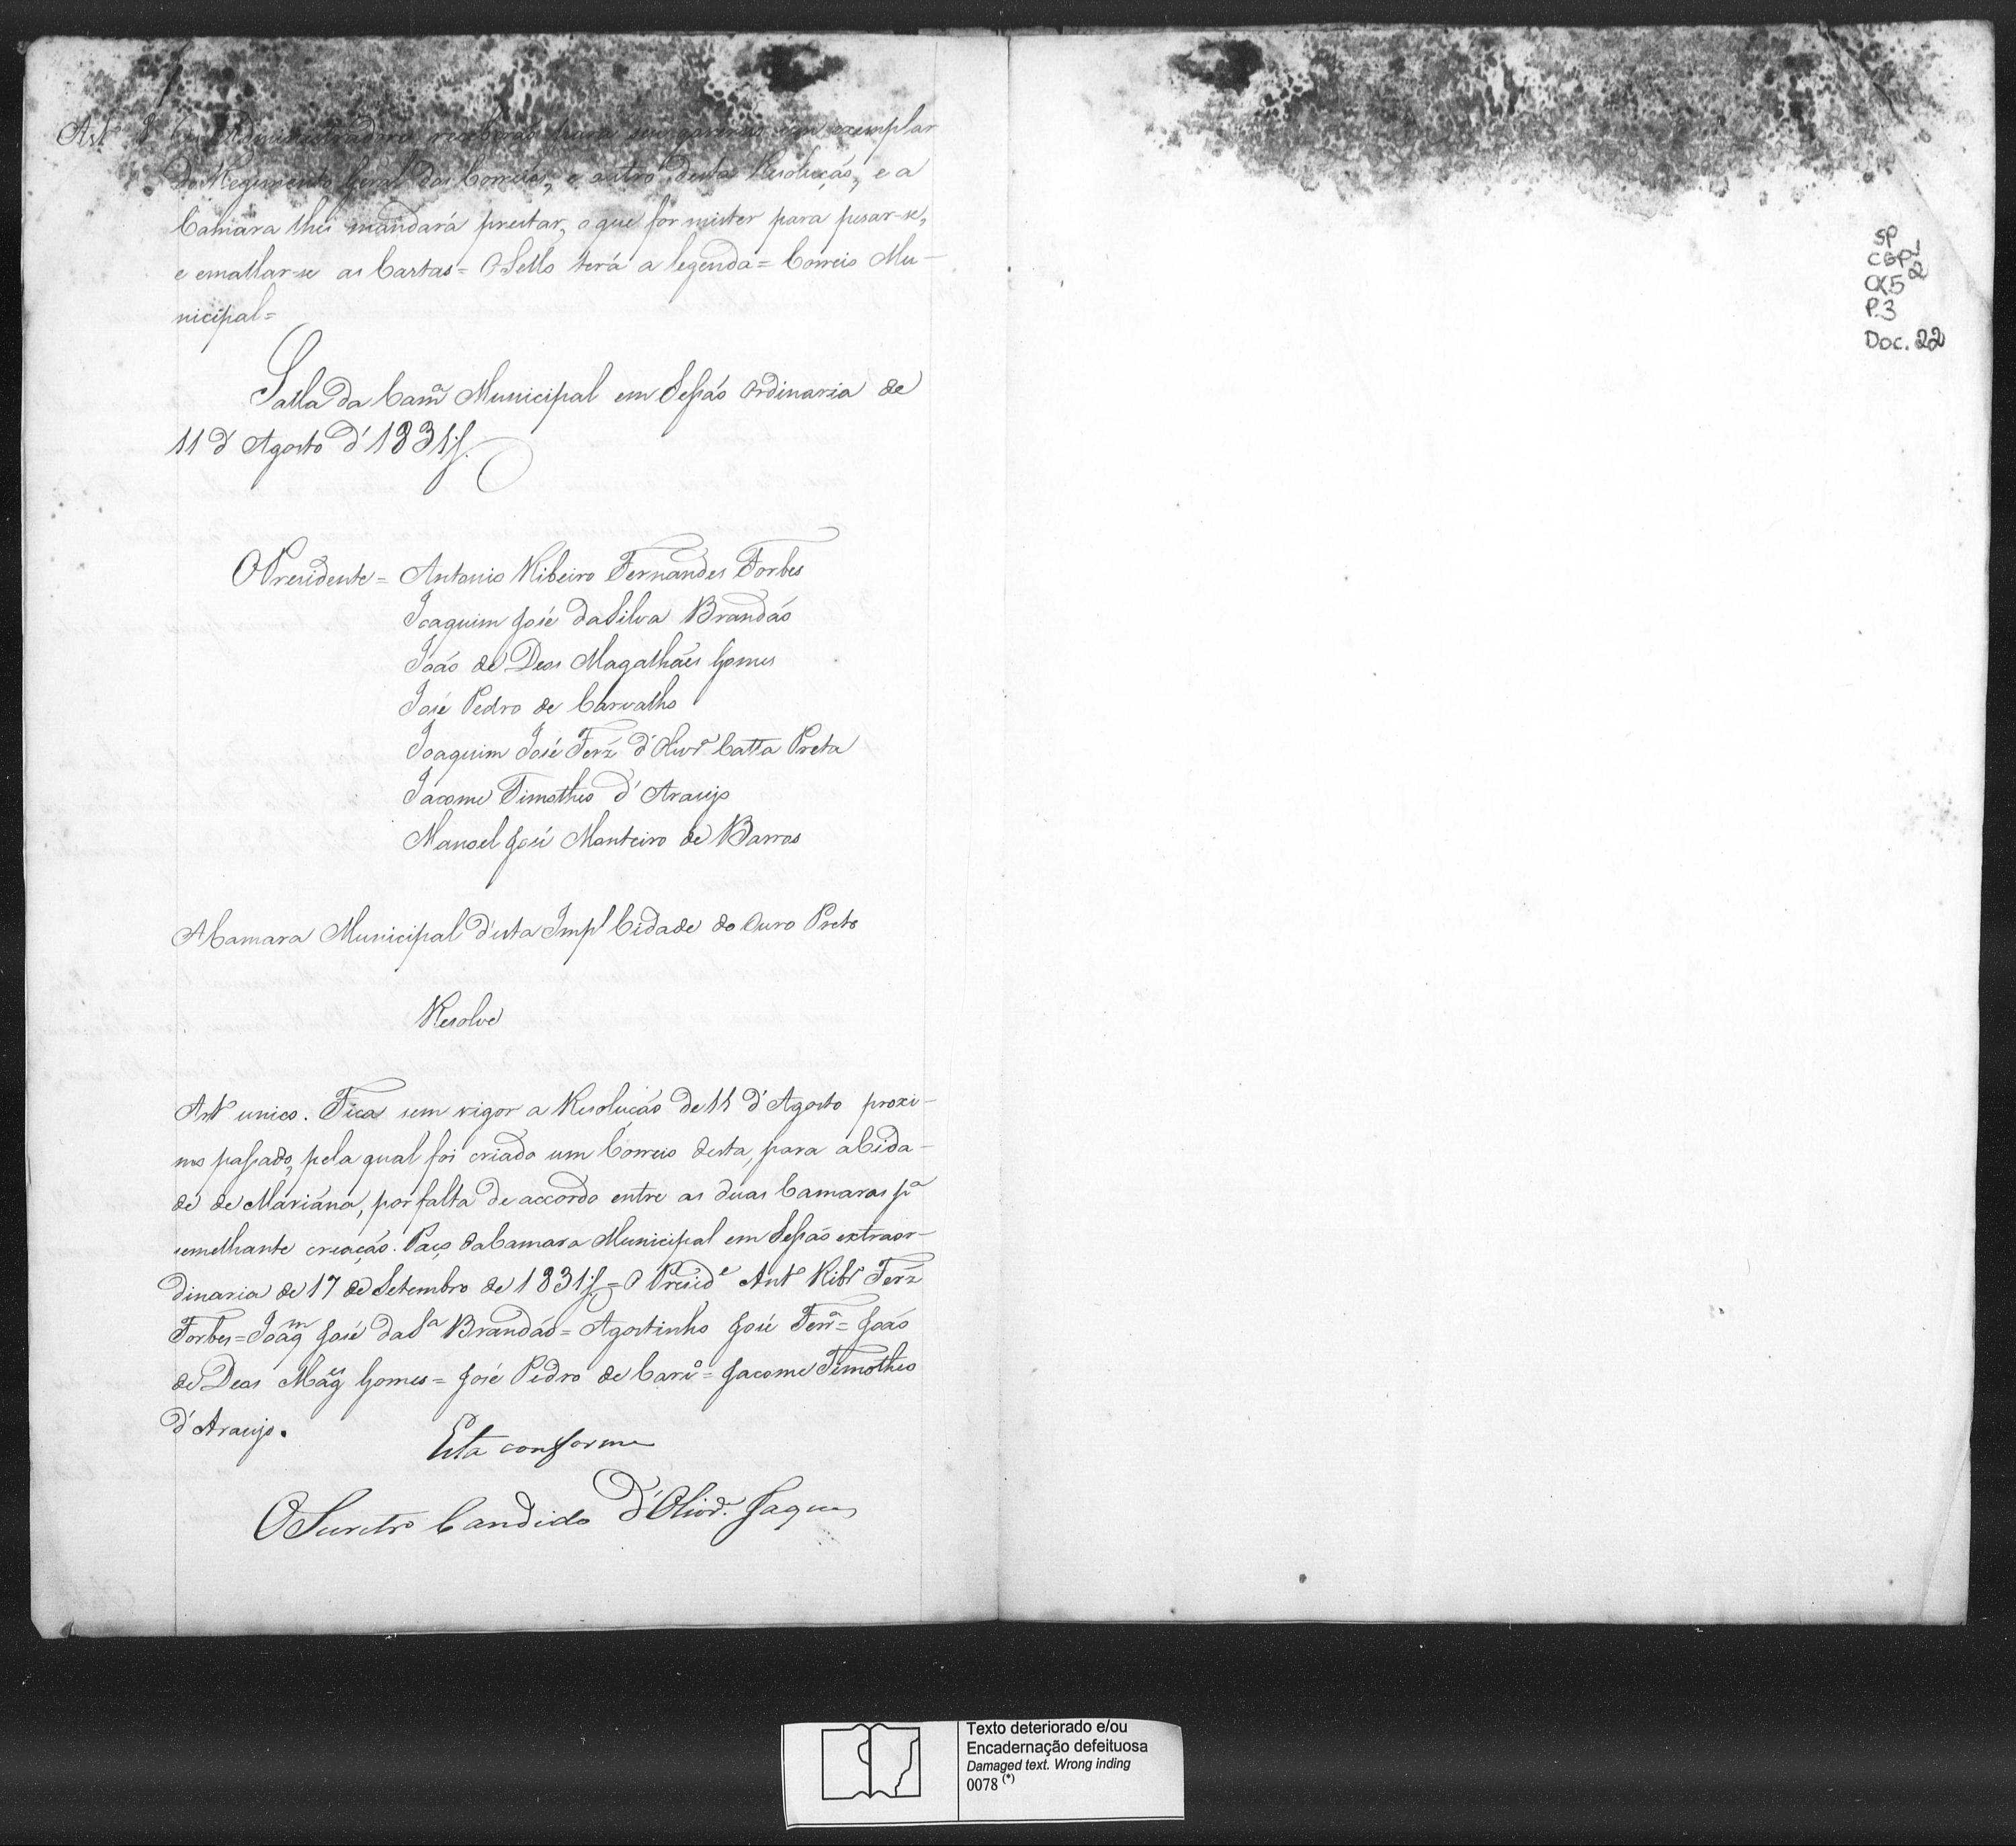 Artº 8 Os Administradores receberaó para seu governo um exemplar
do Regimento Geral dos Correios, e outro desta Resoluçaó, e a
Camara lhes mandará prestar, o que for mister para pesar-se,
e emallar-se as Cartas = O Sello terá a legenda = Correio Mu-
nicipal =
Salla da Camª Municipal em Seſsaó Ordinaria de
11 d'Agosto d'1831.
O Presidente = Antonio Ribeiro Fernandes Forbes
Joaquim José da Silva Brandaó
Joaó de Deos Magalhaẽs Gomes
José Pedro de Carvalho
Joaquim José Ferz d'Olivrª Catta Preta
Jacome Timotheo d'Araujo
Manoel José Monteiro de Barros
A Camara Municipal d'esta Impl Cidade do Ouro Preto
Resolve
Artº unico. Fica sem vigor a Resoluçaó de 11 d'Agosto proxi-
mo paſsado, pela qual foi criado um Correio desta, para a Cida-
de de Marianna, por falta de accordo entre as duas Camaras pª
semelhante creaçaó. Paço da Camara Municipal em Seſsaó extraor-
dinaria de 17 de Setembro de 1831 = O Presidᵉ Antº Ribrº Ferz
Forbes = Joaqᵐ José da Sª Brandaó = Agostinho José Ferrª = Joaó
de Deos Magᵉˢ Gomes = José Pedro de Carvº = Jacome Timotheo
d'Araujo.
Esta conforme
O Secretrº Candido d'Olivrª Jaques
SP
CGP 1
CX5 2
P.3
Doc. 22
Texto deteriorado e/ou
Encadernação defeituosa
Damaged text. Wrong inding
0078 (*)